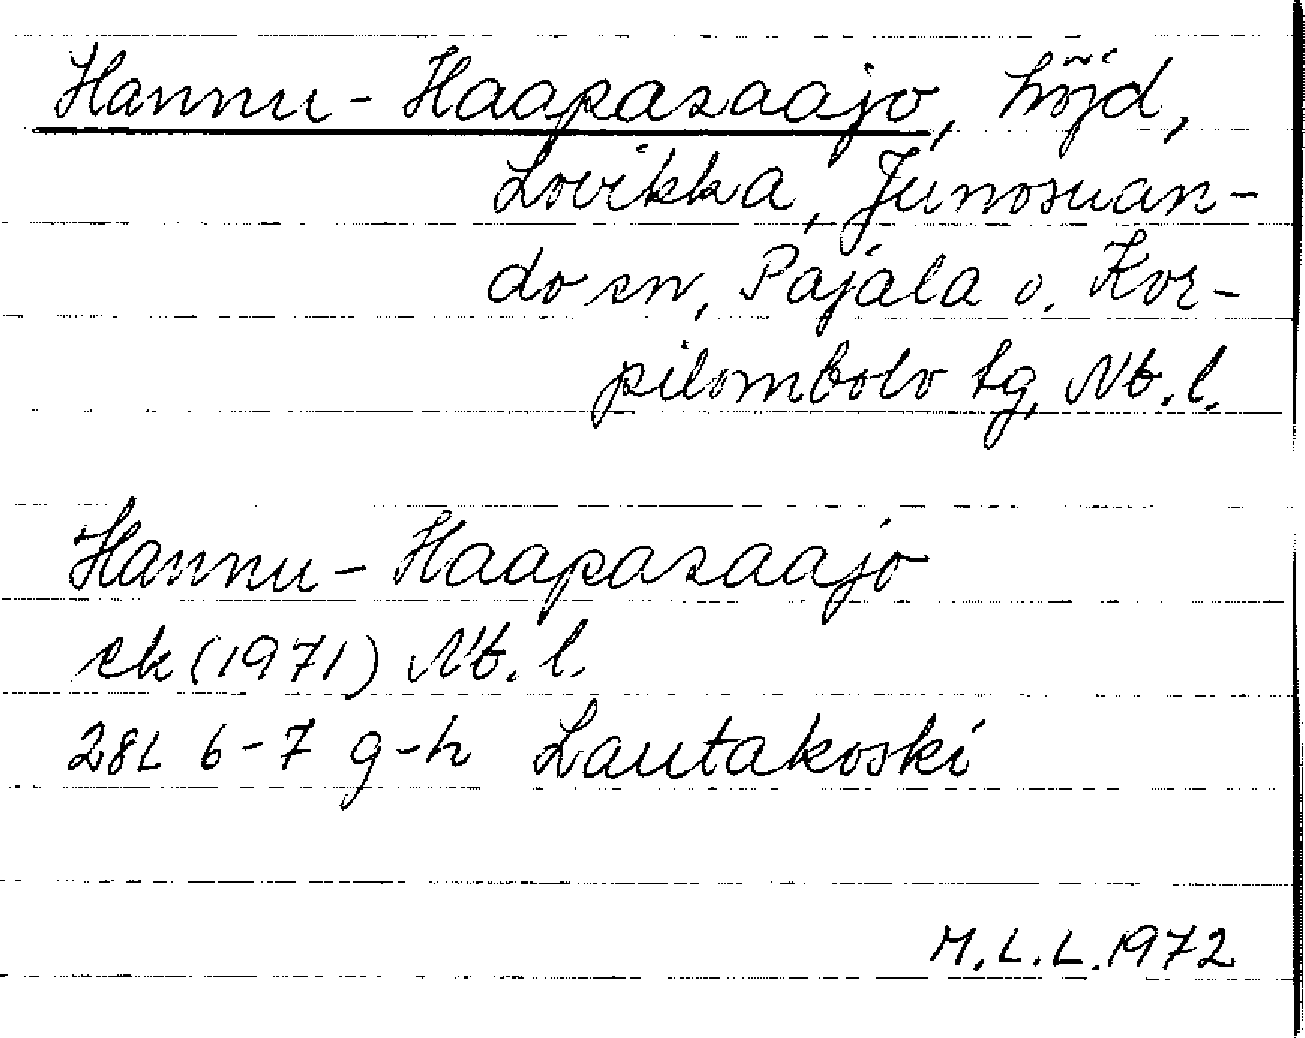 Hannu-Haapasaajo, höjd,
Lovikka, Junosuan-
do sn, Pajala o. Kor-
pilombolo tg, Nb. l.
Hannu-Haapasaajo
ek (1971) Nb. l.
28L 6-7 g-h Lautakoski
M.L.L. 1972